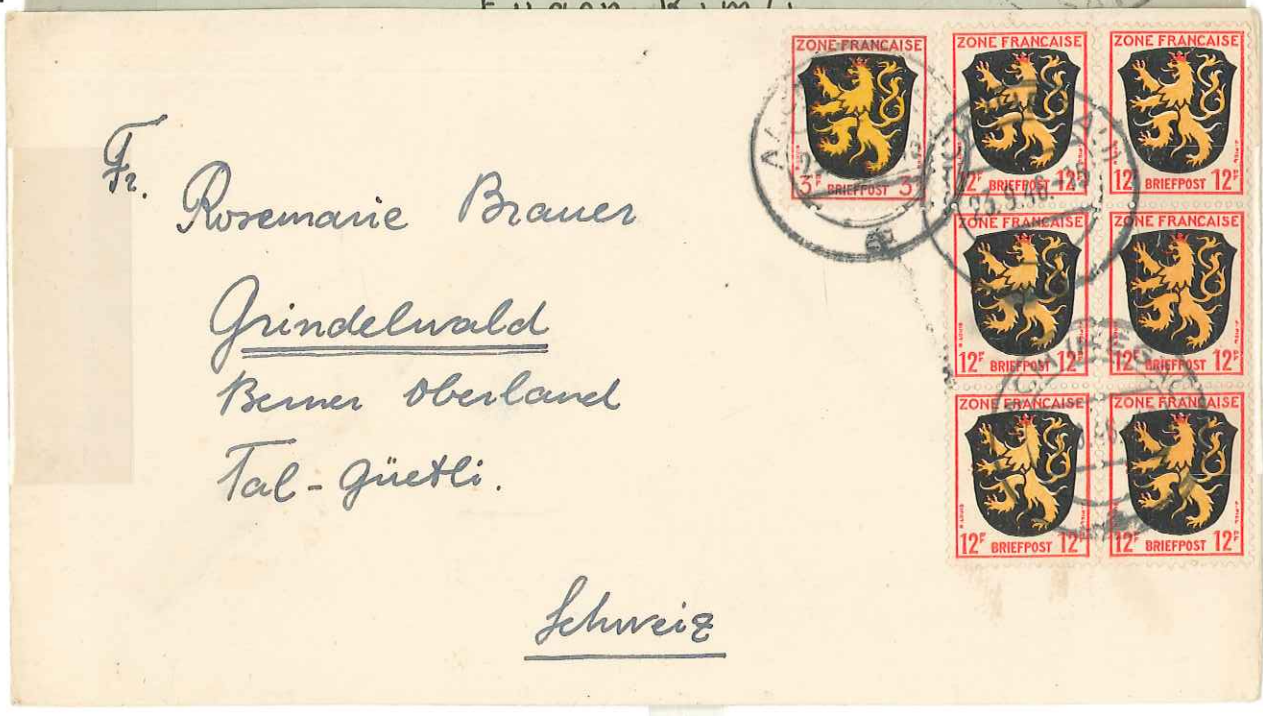 Fr.
Rosemarie Brauer
Grindelwald
Berner Oberland
Tal-Güetli.
Schweiz
ZONE FRANCAISE
3F BRIEFPOST 3F
ZONE FRANCAISE
12F BRIEFPOST 12F
ZONE FRANCAISE
12F BRIEFPOST 12F
ZONE FRANCAISE
12F BRIEFPOST 12F
ZONE FRANCAISE
12F BRIEFPOST 12F
ZONE FRANCAISE
12F BRIEFPOST 12F
ZONE FRANCAISE
12F BRIEFPOST 12F
23.9.46.-15